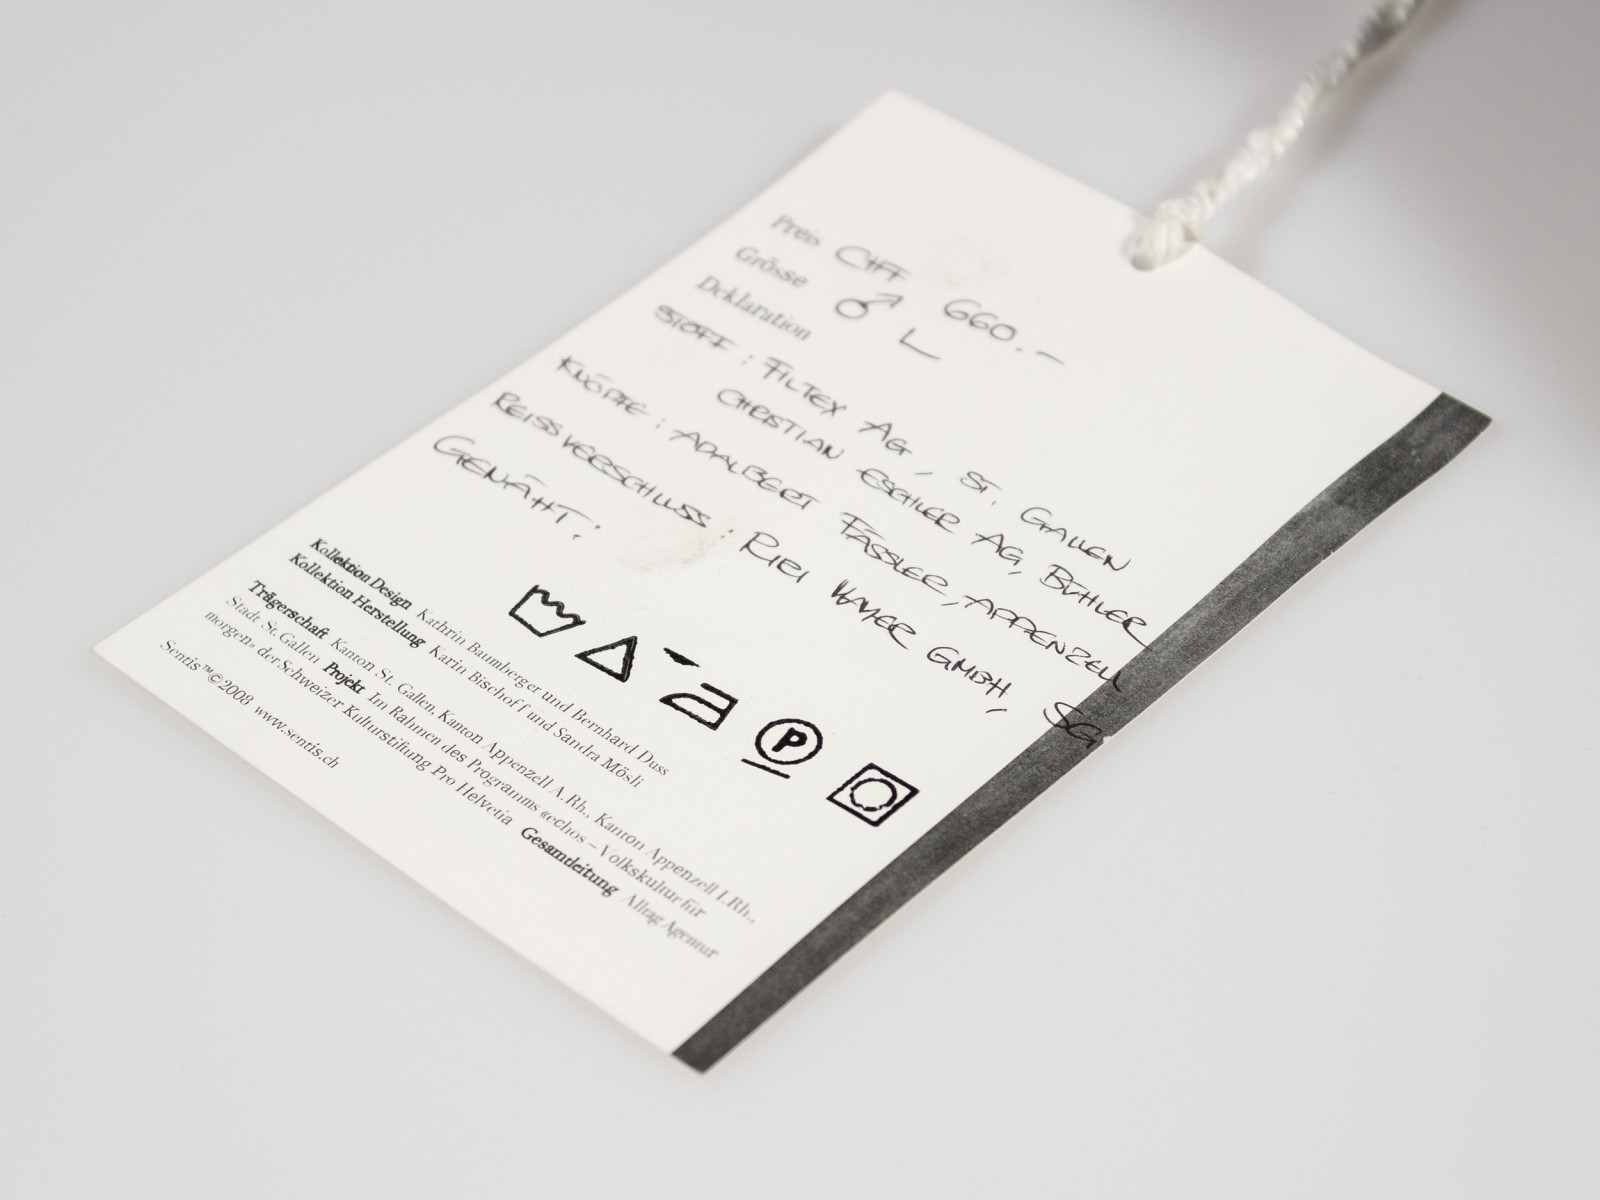 Preis CHF 660.–
Grösse ♂ L
Deklaration
STOFF: FILTEX AG, ST. GALLEN
CHRISTIAN ESCHLER AG, BÜHLER
KNÖPFE: ADALBERT FÄSSLER, APPENZELL
REISSVERSCHLUSS: RIRI GMBH, SG
GENÄHT:
P
Kollektion Design Kathrin Baumberger und Bernhard Duss
Kollektion Herstellung Karin Bischof und Sandra Mösli
Trägerschaft Kanton St. Gallen, Kanton Appenzell A.Rh., Kanton Appenzell I.Rh.,
Stadt St. Gallen Projekt Im Rahmen des Programms «echos – Volkskultur für
morgen» der Schweizer Kulturstiftung Pro Helvetia Gesamtleitung Alltag Agentur
Sentis™©2008 www.sentis.ch